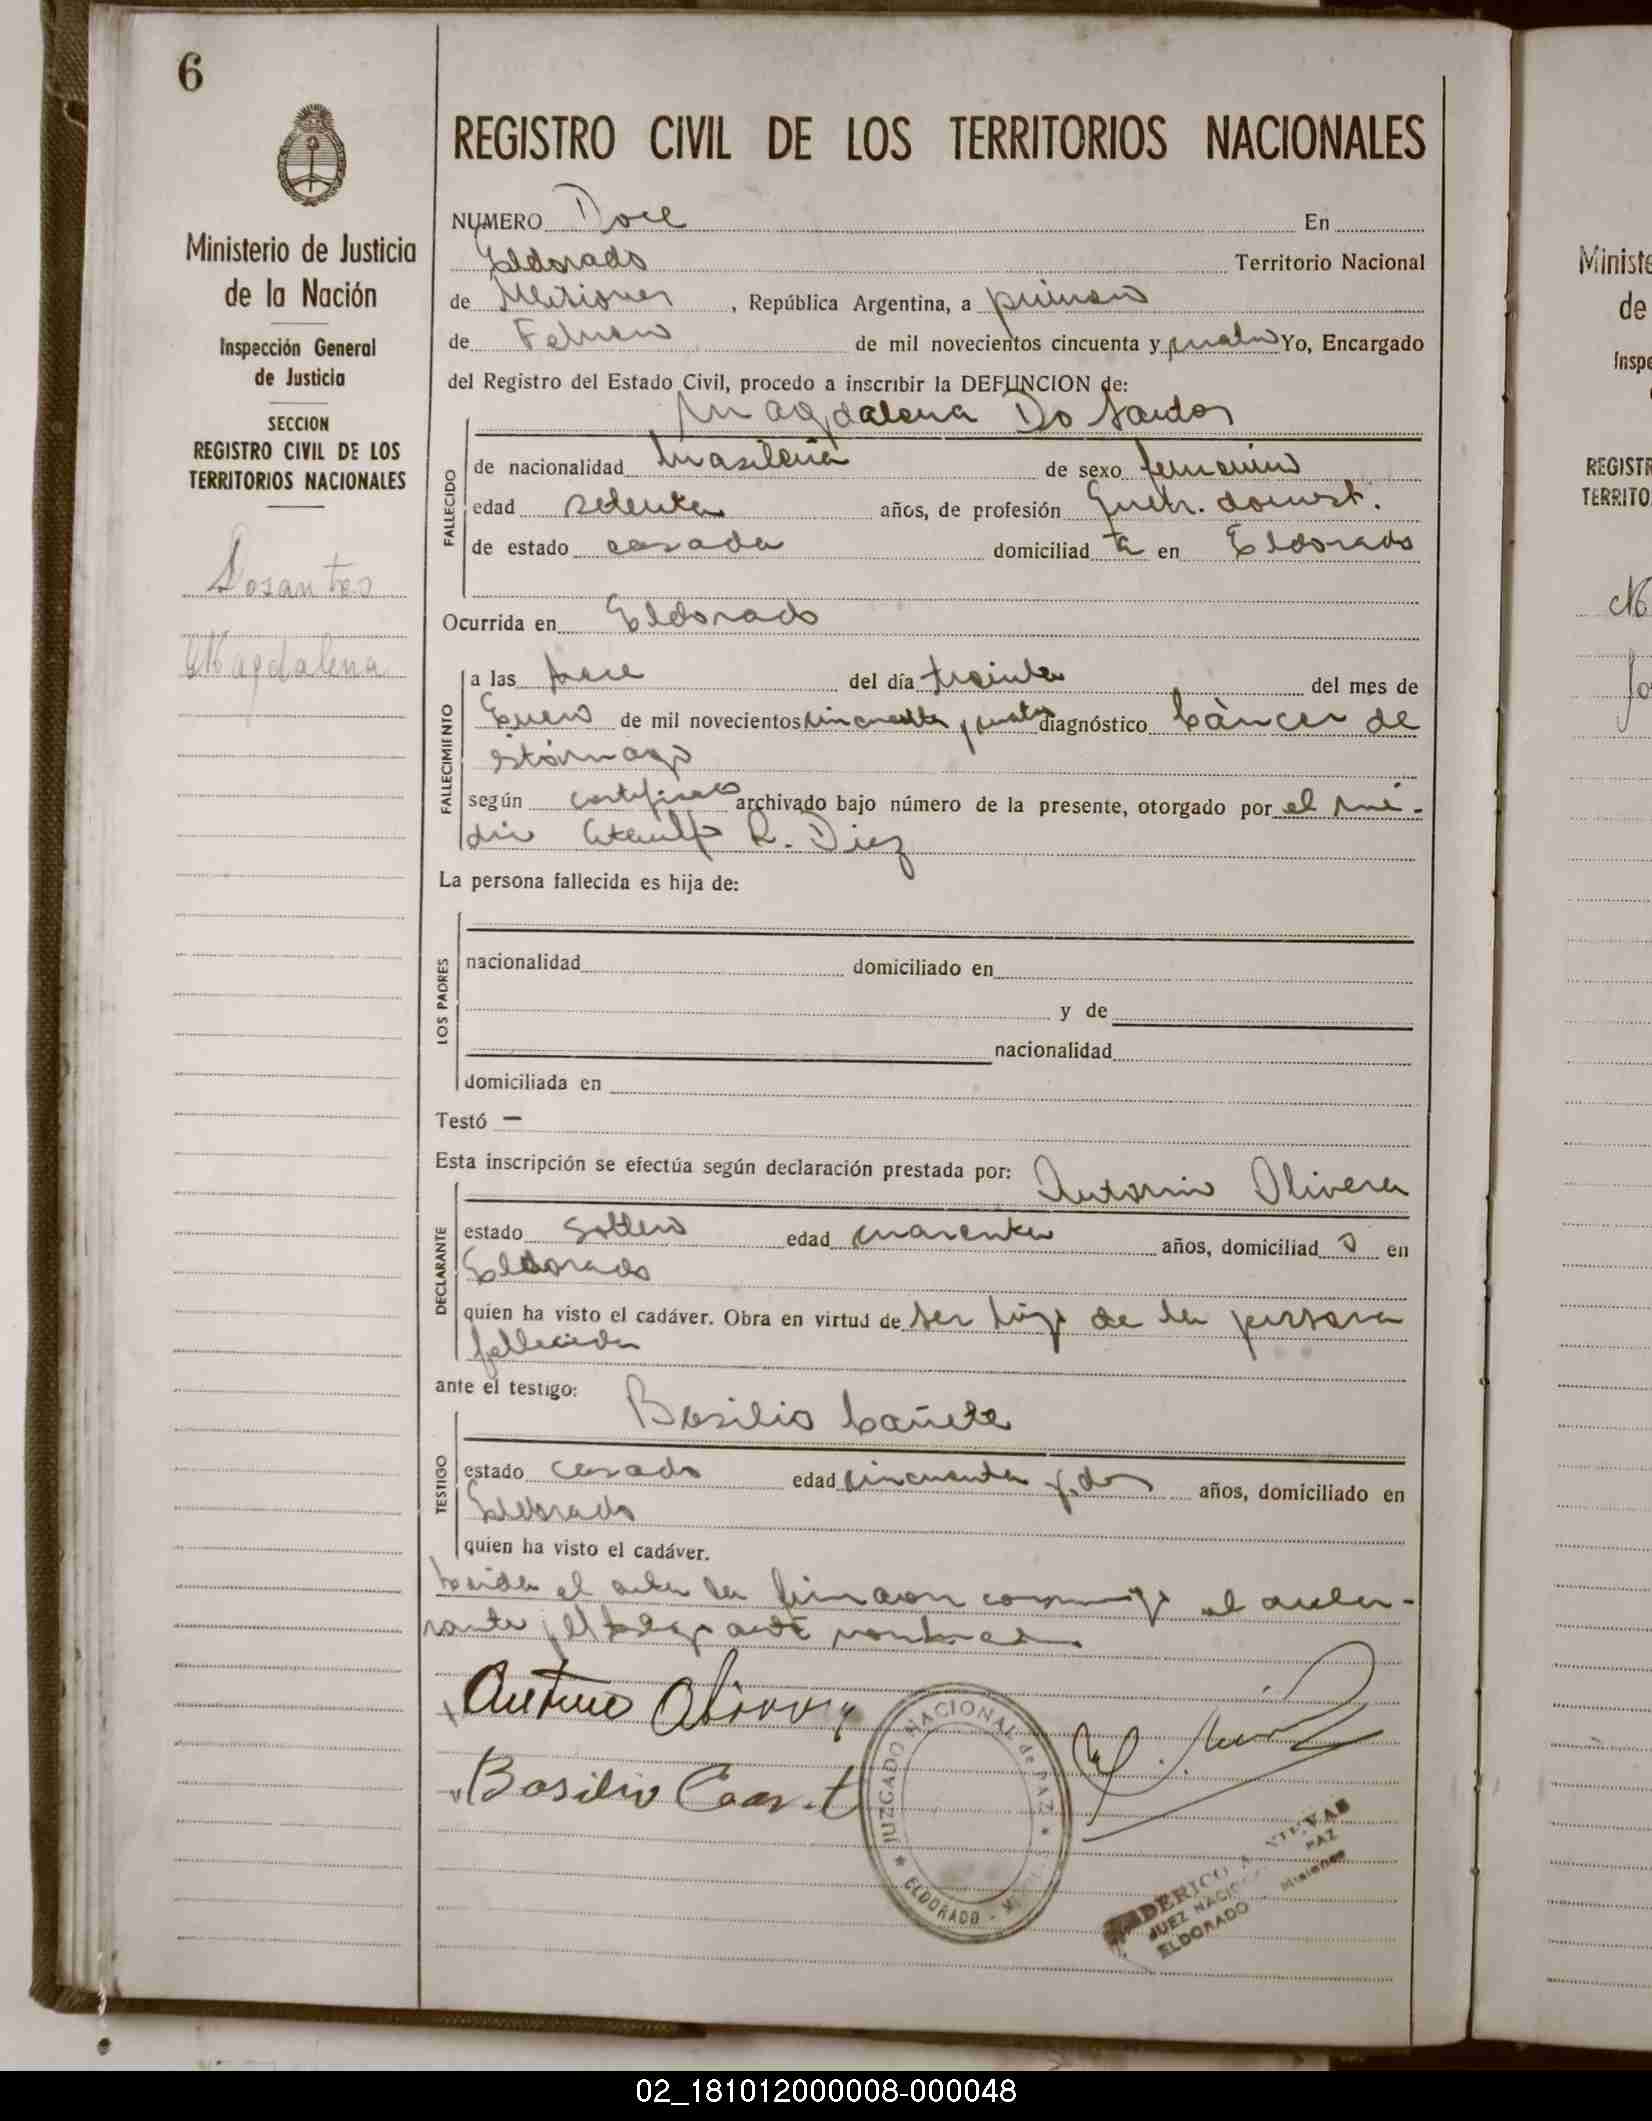 6
Ministerio de Justicia
de la Nación
Inspección General
de Justicia
SECCION
REGISTRO CIVIL DE LOS
TERRITORIOS NACIONALES
Dosantos
Magdalena
REGISTRO CIVIL DE LOS TERRITORIOS NACIONALES
NUMERO Doce En
Eldorado Territorio Nacional
de Misiones, República Argentina, a primero
de Febrero de mil novecientos cincuenta y cuatro Yo, Encargado
del Registro del Estado Civil, procedo a inscribir la DEFUNCION de:
Magdalena Do Santos
FALLECIDO
de nacionalidad brasileña de sexo femenino
edad setenta años, de profesión Queh. domést.
de estado casada domiciliad a en Eldorado
Ocurrida en Eldorado
FALLECIMIENTO
a las trece del día treinta del mes de
Enero de mil novecientos cincuenta y cuatro diagnóstico Cáncer de
estómago
según certificado archivado bajo número de la presente, otorgado por el mé-
dico Ataulfo R. Diez
La persona fallecida es hija de:
LOS PADRES
nacionalidad domiciliado en
y de
nacionalidad
domiciliada en
Testó —
Esta inscripción se efectúa según declaración prestada por: Antonio Olivera
DECLARANTE
estado soltero edad cuarenta años, domiciliad o en
Eldorado
quien ha visto el cadáver. Obra en virtud de ser hijo de la persona
fallecida
ante el testigo: Basilio Cañete
TESTIGO
estado casado edad cincuenta y dos años, domiciliado en
Eldorado
quien ha visto el cadáver.
Leida el acta la firman conmigo el decla-
rante y el testigo ante nombrados.
Basilio
JUZGADO NACIONAL de PAZ
ELDORADO
JUEZ NACI
PAZ
ELDORADO Misiones
Ministe
de
Inspe
REGISTR
TERRITO
02_181012000008-000048